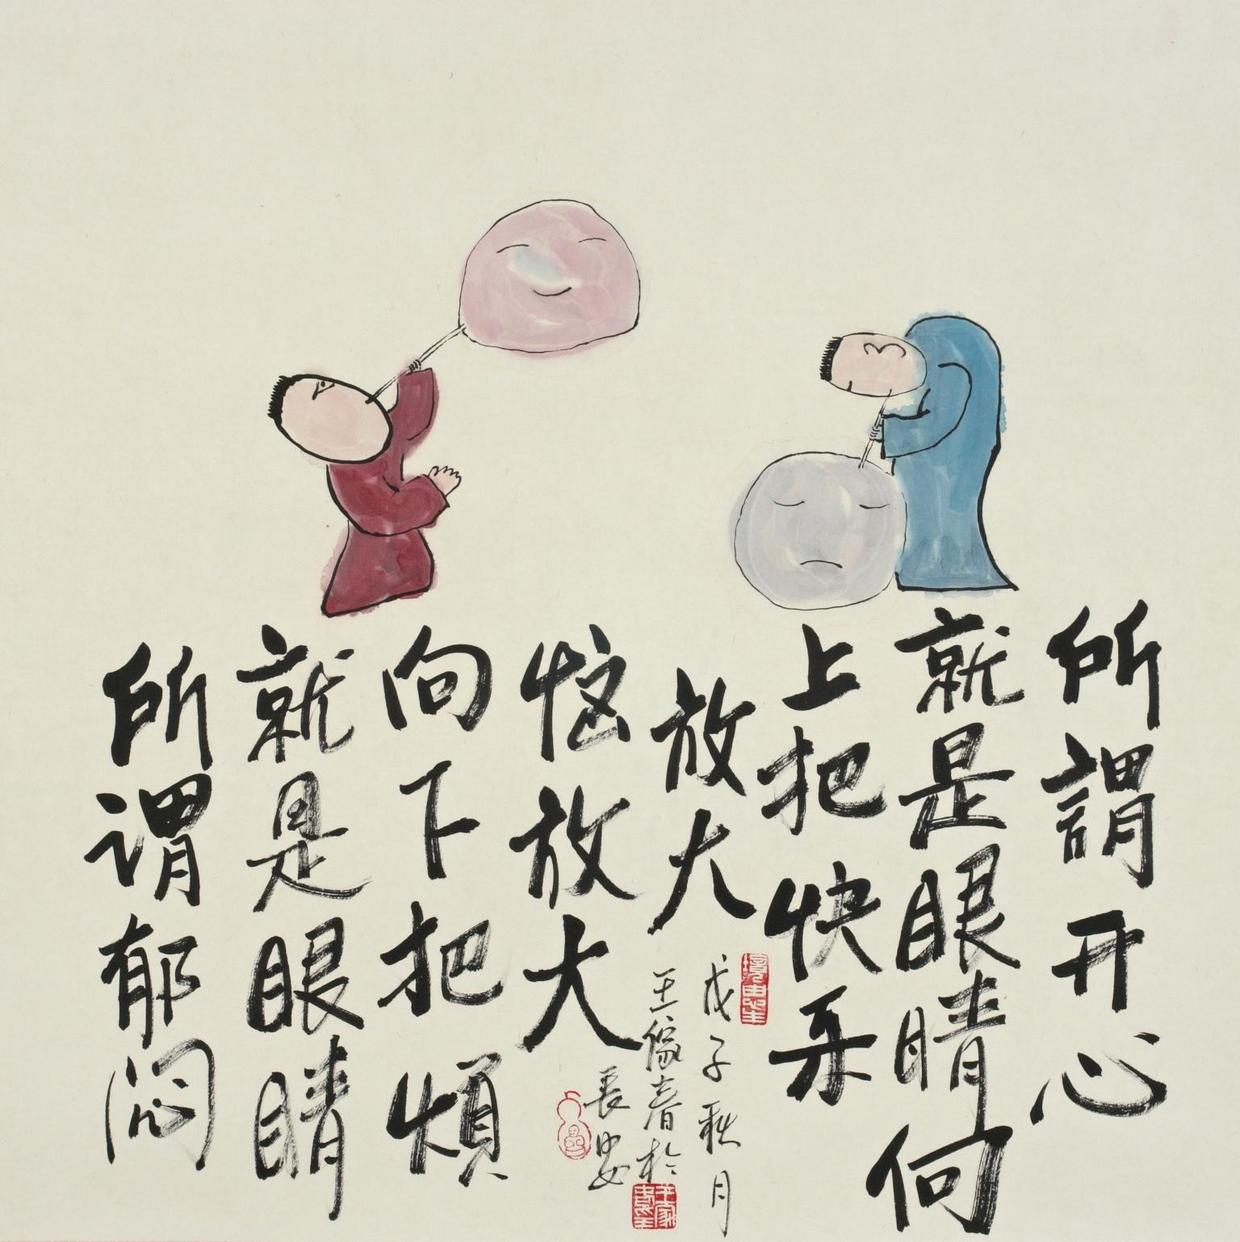 所謂开心
就是眼睛向
上把快乐
放大
所谓郁闷
就是眼睛
向下把煩
恼放大
戊子秋月
王家春於
長安
境由心生